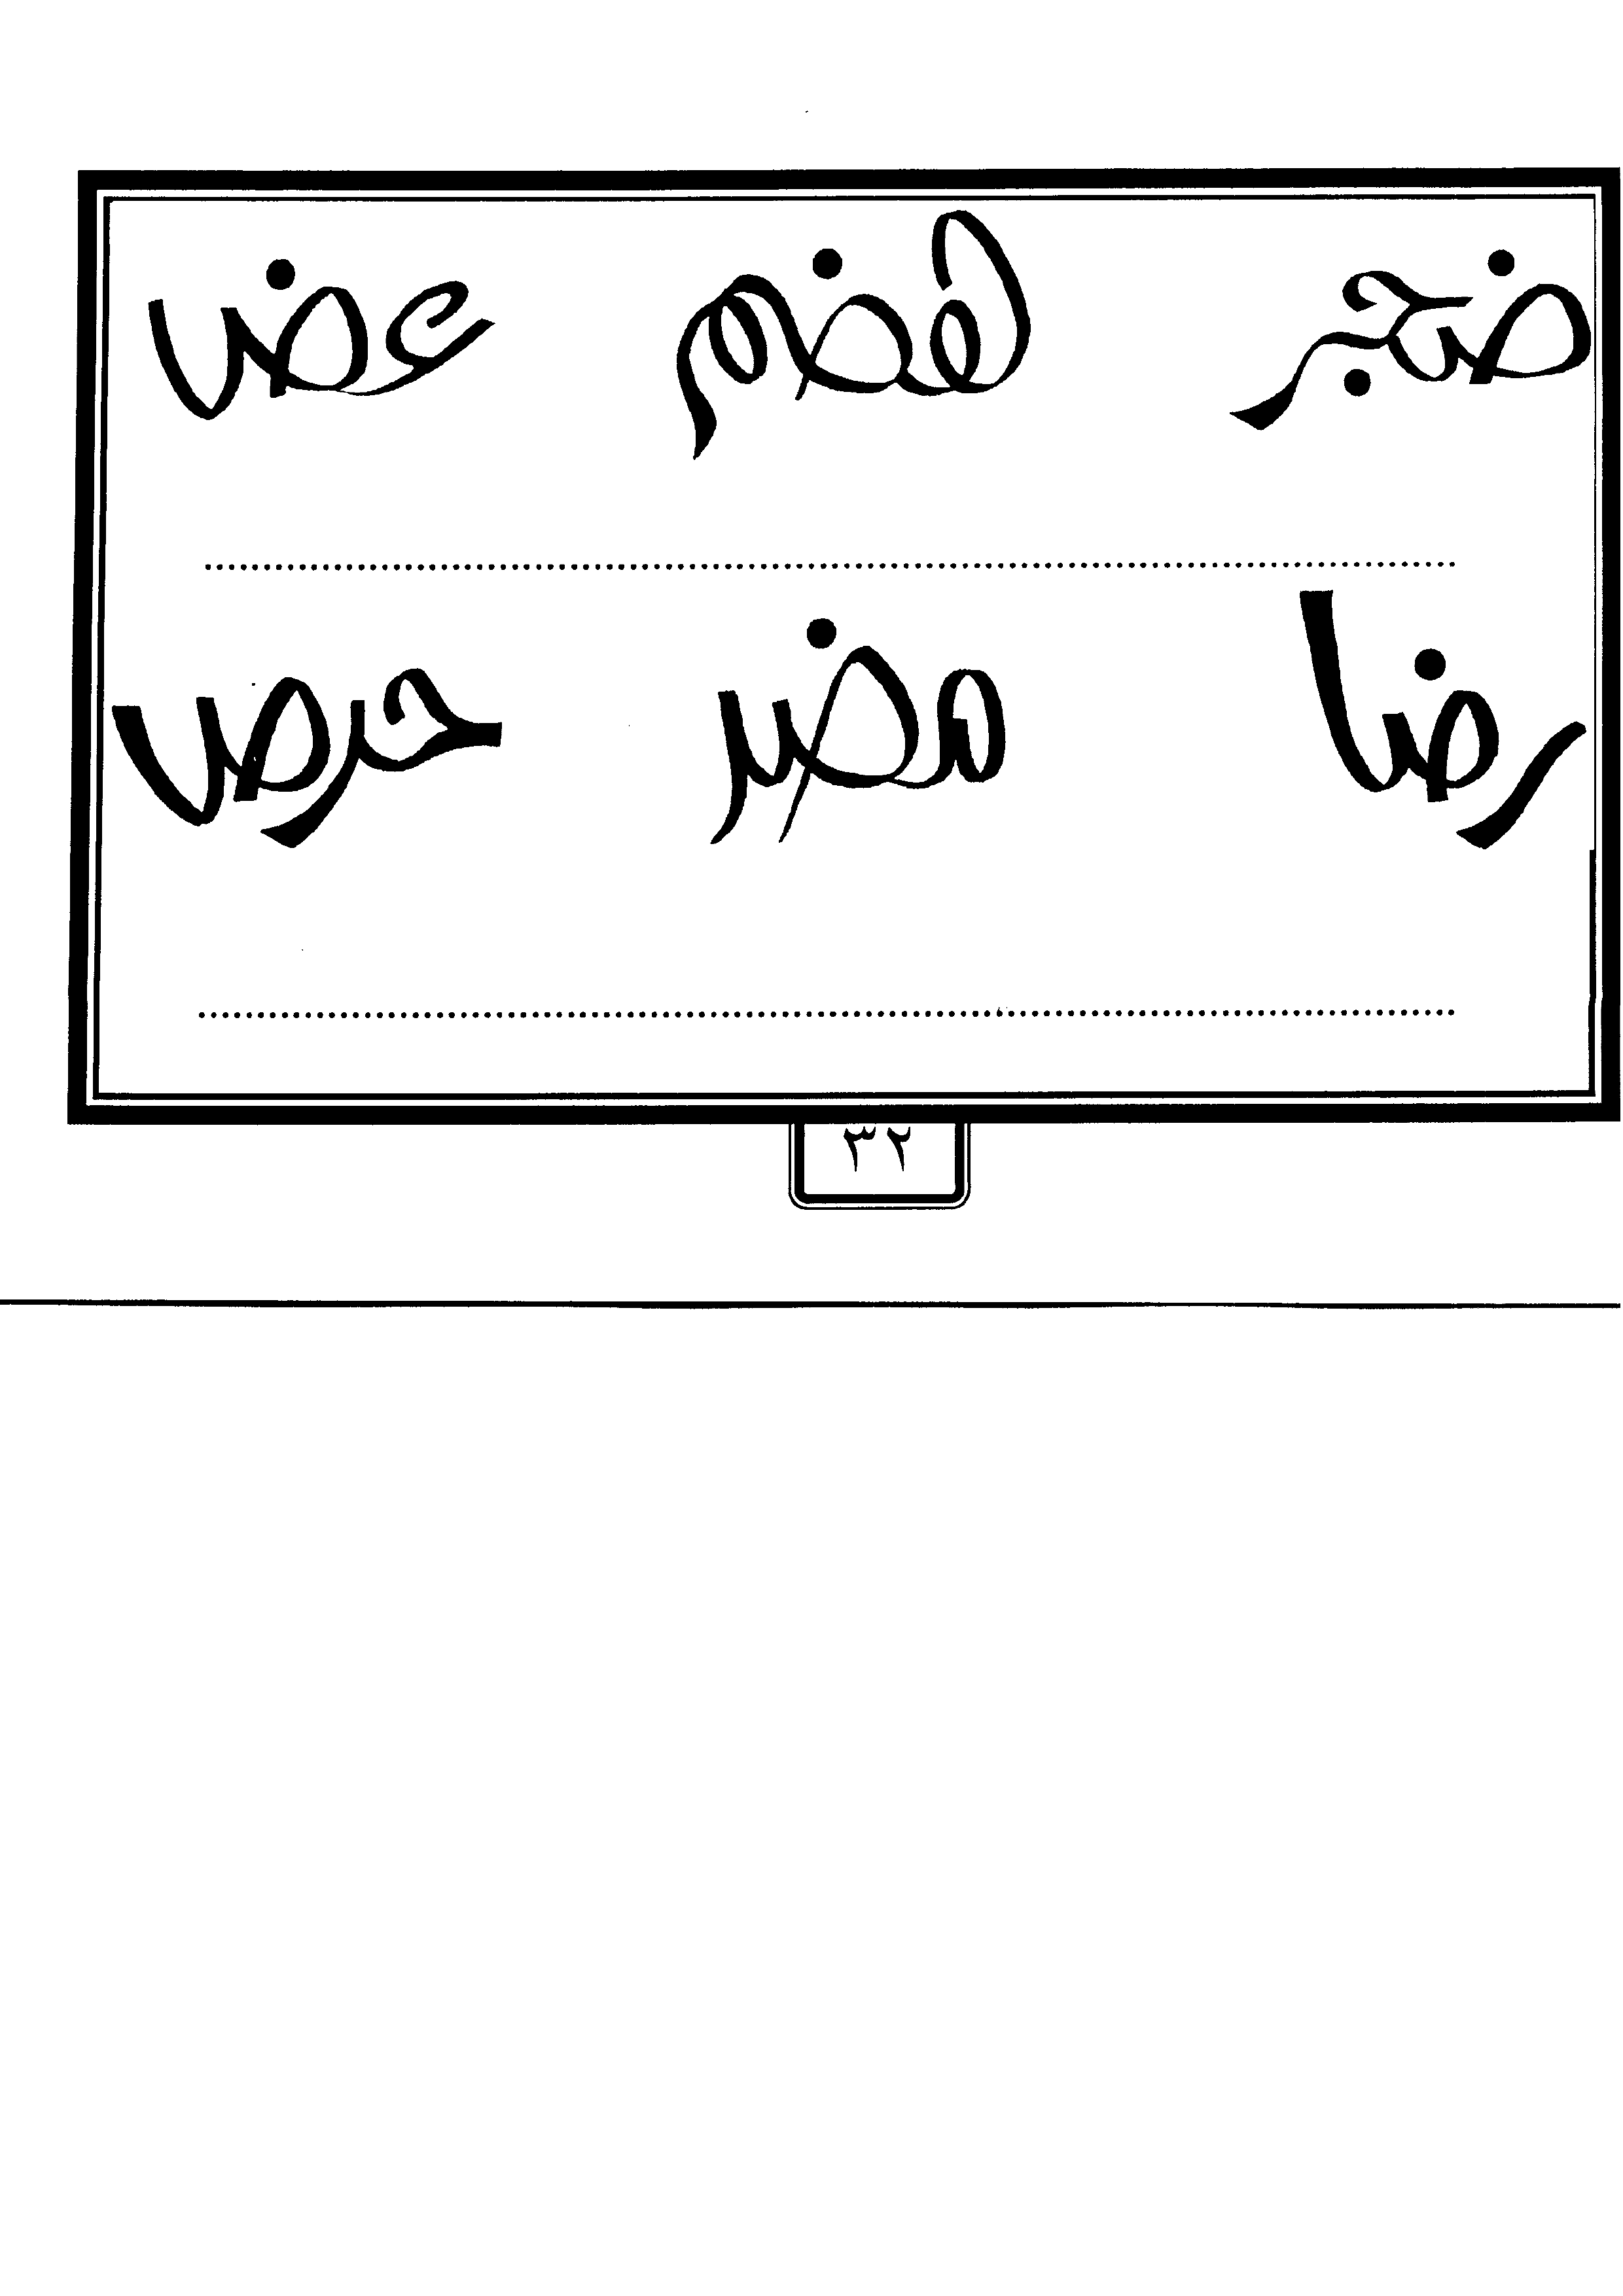 ضجر هضم عض
رضا مضر حرص
٣٢